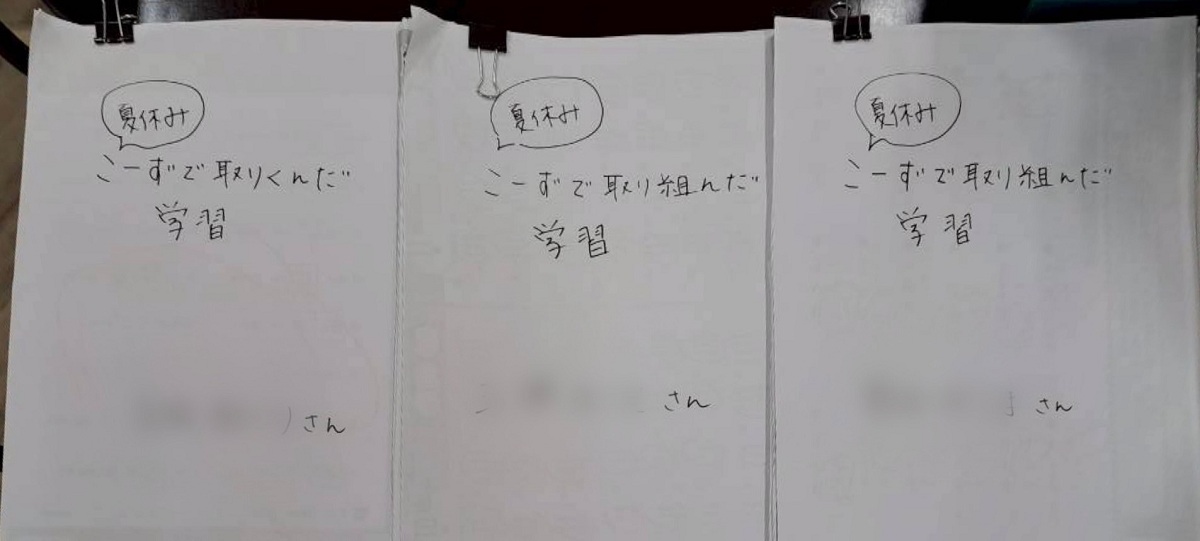 夏休み
こーずで取りくんだ
学習
さん
夏休み
こーずで取り組んだ
学習
さん
夏休み
こーずで取り組んだ
学習
さん